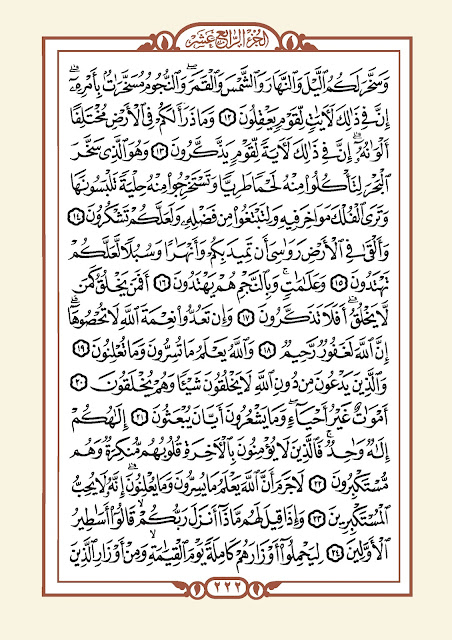 الجزء الرابع عشر
وَسَخَّرَ لَكُمُ ٱلَّيْلَ وَٱلنَّهَارَ وَٱلشَّمْسَ وَٱلْقَمَرَۖ وَٱلنُّجُومُ مُسَخَّرَٰتُۢ بِأَمْرِهِۦٓۗ
إِنَّ فِى ذَٰلِكَ لَءَايَٰتٍ لِّقَوْمٍ يَعْقِلُونَ ١٢ وَمَا ذَرَأَ لَكُمْ فِى ٱلْأَرْضِ مُخْتَلِفًا
أَلْوَٰنُهُۥٓۗ إِنَّ فِى ذَٰلِكَ لَءَايَةً لِّقَوْمٍ يَذَّكَّرُونَ ١٣ وَهُوَ ٱلَّذِى سَخَّرَ
ٱلْبَحْرَ لِتَأْكُلُوا۟ مِنْهُ لَحْمًا طَرِيًّا وَتَسْتَخْرِجُوا۟ مِنْهُ حِلْيَةً تَلْبَسُونَهَا
وَتَرَى ٱلْفُلْكَ مَوَاخِرَ فِيهِ وَلِتَبْتَغُوا۟ مِن فَضْلِهِۦ وَلَعَلَّكُمْ تَشْكُرُونَ ١٤
وَأَلْقَىٰ فِى ٱلْأَرْضِ رَوَٰسِىَ أَن تَمِيدَ بِكُمْ وَأَنْهَٰرًا وَسُبُلًا لَّعَلَّكُمْ
تَهْتَدُونَ ١٥ وَعَلَٰمَٰتٍۚ وَبِٱلنَّجْمِ هُمْ يَهْتَدُونَ ١٦ أَفَمَن يَخْلُقُ كَمَن
لَّا يَخْلُقُۗ أَفَلَا تَذَكَّرُونَ ١٧ وَإِن تَعُدُّوا۟ نِعْمَةَ ٱللَّهِ لَا تُحْصُوهَآۗ
إِنَّ ٱللَّهَ لَغَفُورٌ رَّحِيمٌ ١٨ وَٱللَّهُ يَعْلَمُ مَا تُسِرُّونَ وَمَا تُعْلِنُونَ ١٩
وَٱلَّذِينَ يَدْعُونَ مِن دُونِ ٱللَّهِ لَا يَخْلُقُونَ شَيْـًٔا وَهُمْ يُخْلَقُونَ ٢٠
أَمْوَٰتٌ غَيْرُ أَحْيَآءٍۖ وَمَا يَشْعُرُونَ أَيَّانَ يُبْعَثُونَ ٢١ إِلَٰهُكُمْ
إِلَٰهٌ وَٰحِدٌۚ فَٱلَّذِينَ لَا يُؤْمِنُونَ بِٱلْءَاخِرَةِ قُلُوبُهُم مُّنكِرَةٌ وَهُم
مُّسْتَكْبِرُونَ ٢٢ لَا جَرَمَ أَنَّ ٱللَّهَ يَعْلَمُ مَا يُسِرُّونَ وَمَا يُعْلِنُونَۚ إِنَّهُۥ لَا يُحِبُّ
ٱلْمُسْتَكْبِرِينَ ٢٣ وَإِذَا قِيلَ لَهُم مَّاذَآ أَنزَلَ رَبُّكُمْۙ قَالُوٓا۟ أَسَٰطِيرُ
ٱلْأَوَّلِينَ ٢٤ لِيَحْمِلُوٓا۟ أَوْزَارَهُمْ كَامِلَةً يَوْمَ ٱلْقِيَٰمَةِۙ وَمِنْ أَوْزَارِ ٱلَّذِينَ
٢٢٢